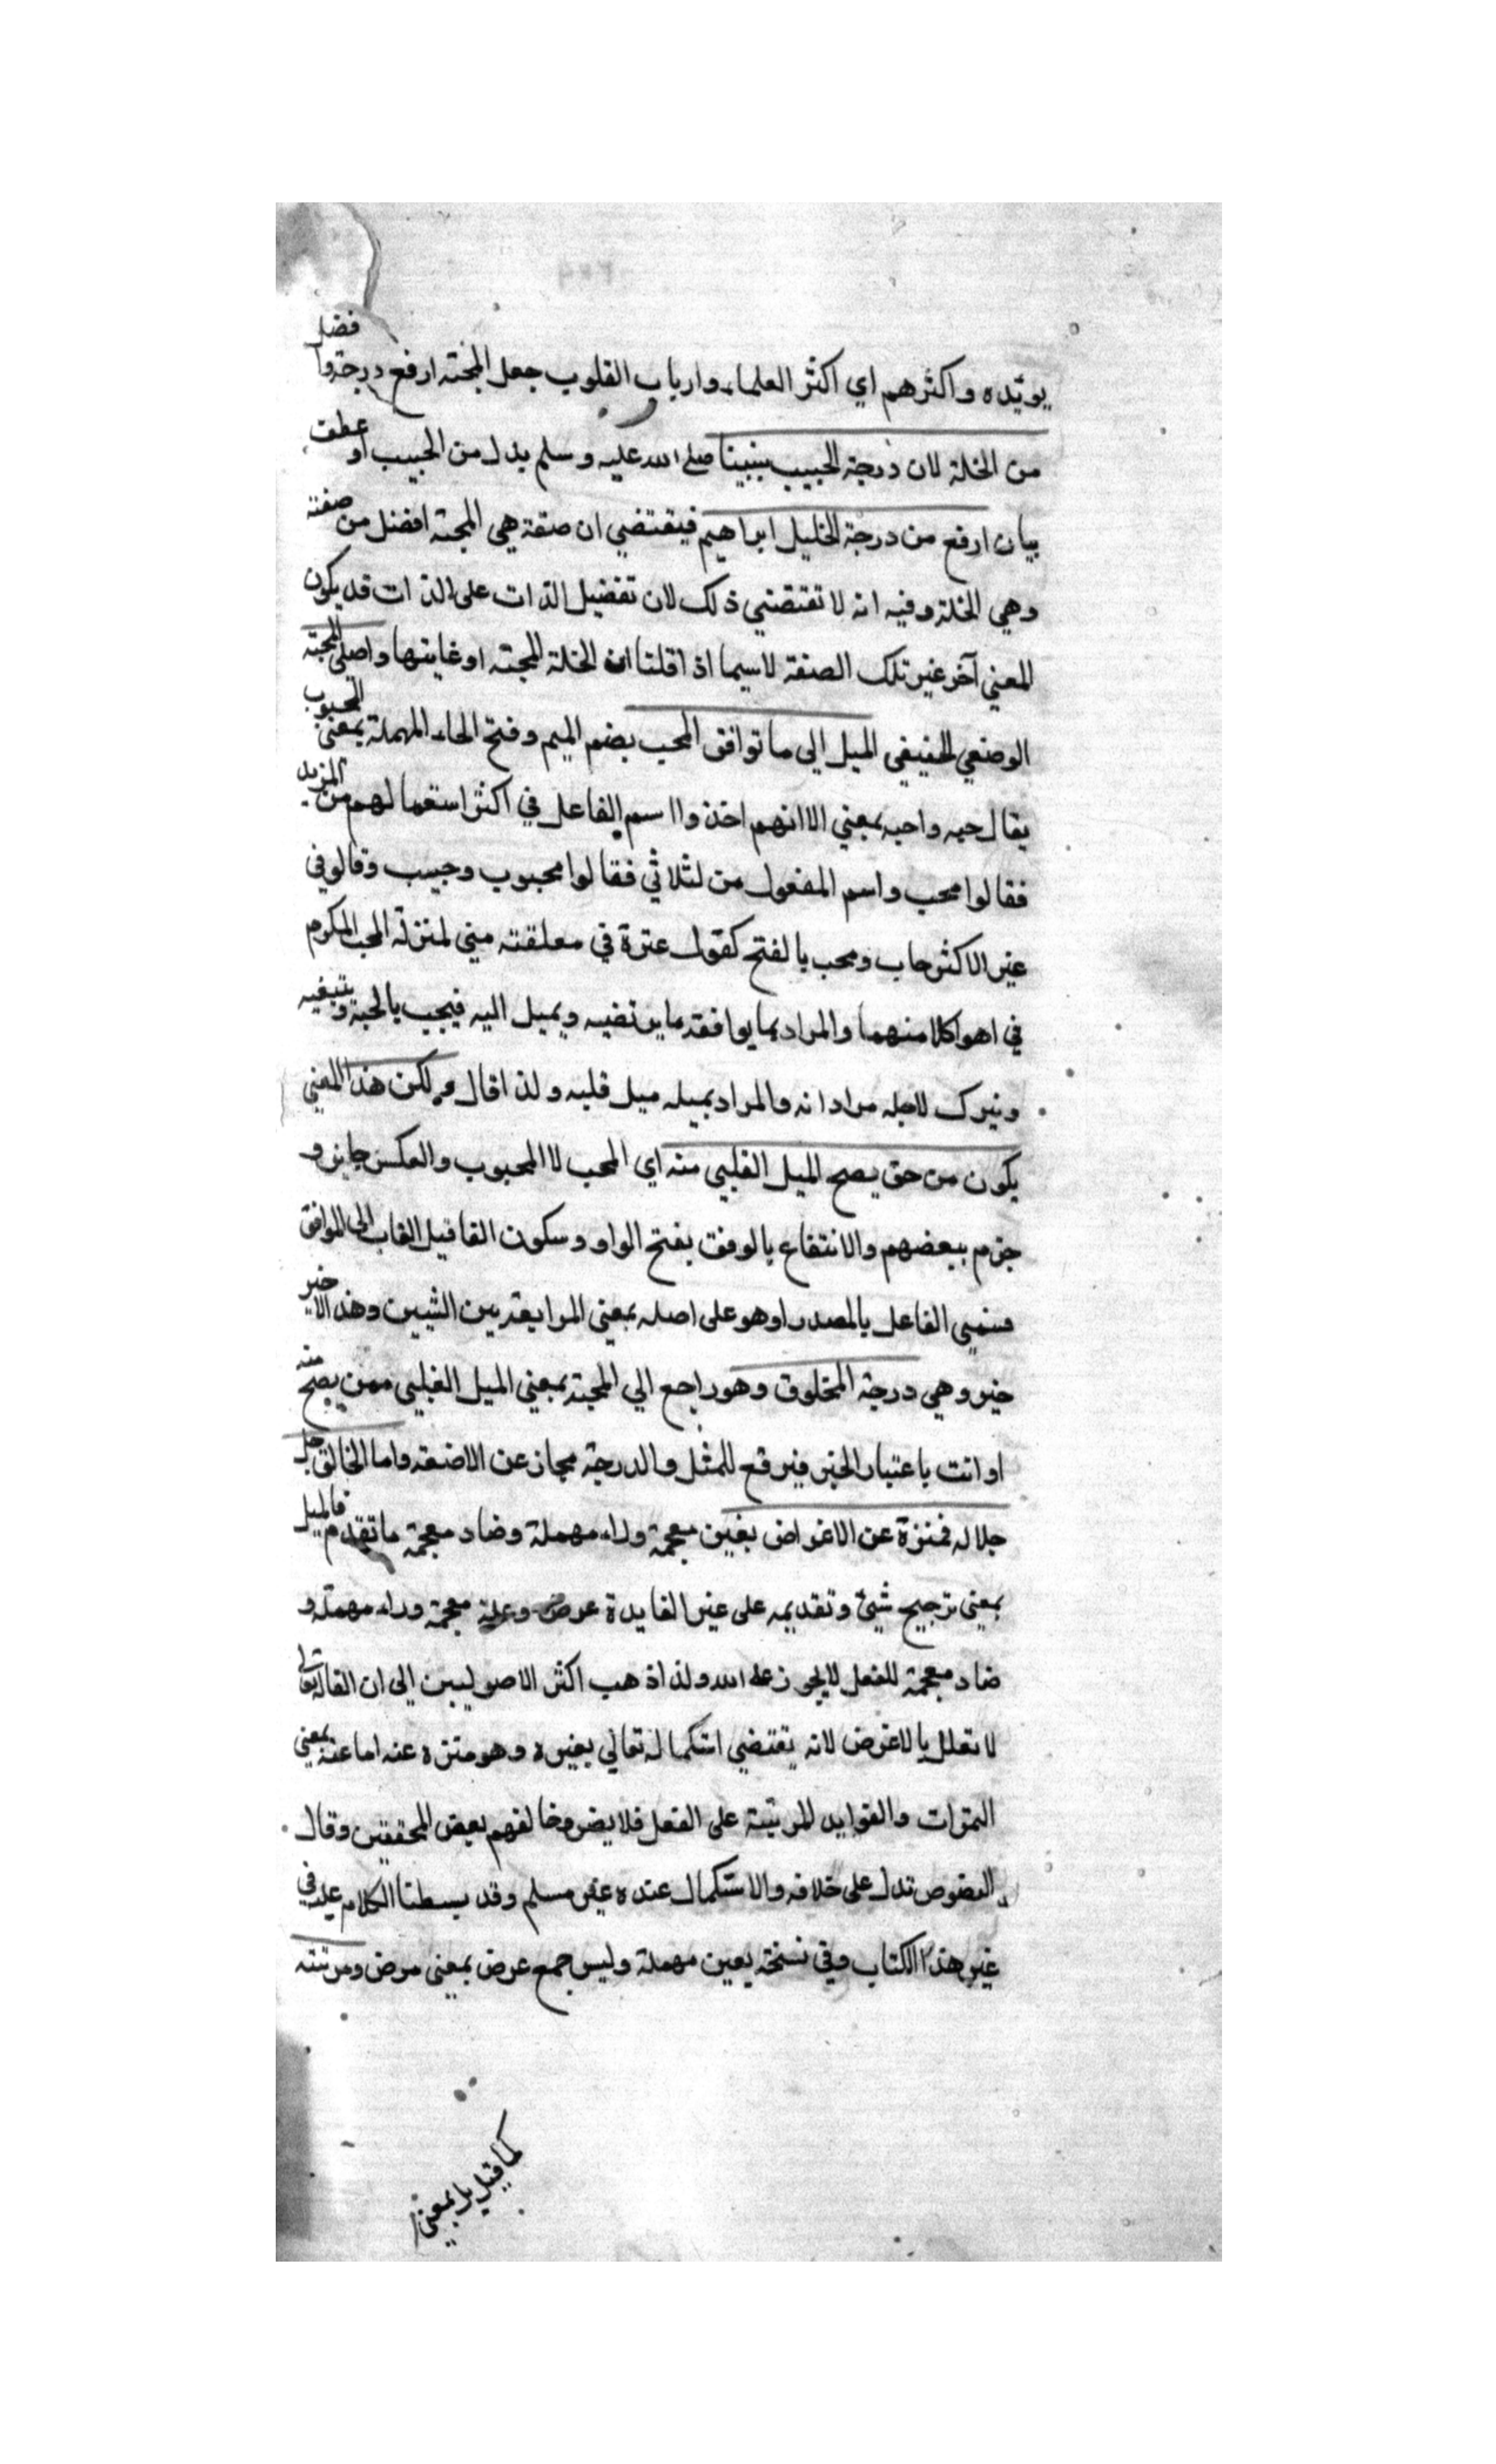 يويّده واكثرهم اي اكثر العلماء وارباب القلوب جعل المحبة ارفع درجة وافضل
من الخلة لان درجة الحبيب نبينا صلى الله عليه وسلم بدل من الحبيب او عطف
بيان ارفع من درجة الخليل ابراهيم فيقتضي ان صفة هي المحبة افضل من صفته
وهي الخلة وفيه انه لا تقتضي ذلك لان تفضيل الذات على الذات قد يكون
لمعني آخر غير تلك الصفة لاسيما اذا قلنا ان الخلة المحبة او غايتها واصل المحبة
الوضعي الحقيقي الميل الي ما توافق المحب بضم الميم وفتح الحاء المهملة بمعنى المحبوب
يقال حبه واحبه بمعني الا انهم اخذوا اسم الفاعل في اكثر استعمالهم من المزيد
فقالوا محب واسم المفعول من لثلاثي فقالوا محبوب وحبيب وقالو في
غير الاكثر حاب ومحب بالفتح كقول عنترة في معلقته مني بمنزلة المحب المكرم
في اهوا كلا منهما والمراد بما يوافقه ما يرتضيه ويميل اليه فيحب بالحبه ويتبغيه
ويترك لاجله مراداته والمراد بميله ميل قلبه ولذا قال ولكن هذا المعني
يكون من حق يصح الميل القلبي منه اي المحب لا المحبوب والعكس جايز و
جزم ببعضهم والانتفاع بالوفق بفتح الواو وسكون الفا قيل القاب الى الموافق
فسمي الفاعل بالمصدر او هو على اصله بمعنى المرابعة بين الشيين وهذا الاخير
خير وهي درجة المخلوق وهو راجع الي المحبة بمعني الميل القلبي ممن يصح منه
او انت باعتبار الخبر فيرفع للمثل والدرجة مجاز عن الاضعة واما الخالق جل
جلاله فمنزة عن الاغراض بغين معجمة وراء مهملة وضاد معجمة ما تقدم فالميل
بمعني ترجيح شيئ وتقديمه على غير الفايدة عرض وعلة معجمة وراء مهملة و
ضاد معجمة للفعل لا يجوز على الله ولذا ذهب اكثر الاصوليين الي ان القاله تعالى
لا تعلل بالاغرض لانه يقتضي استكماله تعالي بغيره وهو متنزه عنه اما عنه بمعني
الثمرات والفوايد المرتبة على الفعل فلا يضر وخالفهم بعض المحققين وقال
النصوص تدل على خلافه والاستكمال عنده غير مسلم وقد بسطنا الكلام عليه في
غير هذا الكتاب وفي نسخة بعين مهملة وليس جمع عرض بمعنى مرض ومرتبته
كما قيل بل بمعني